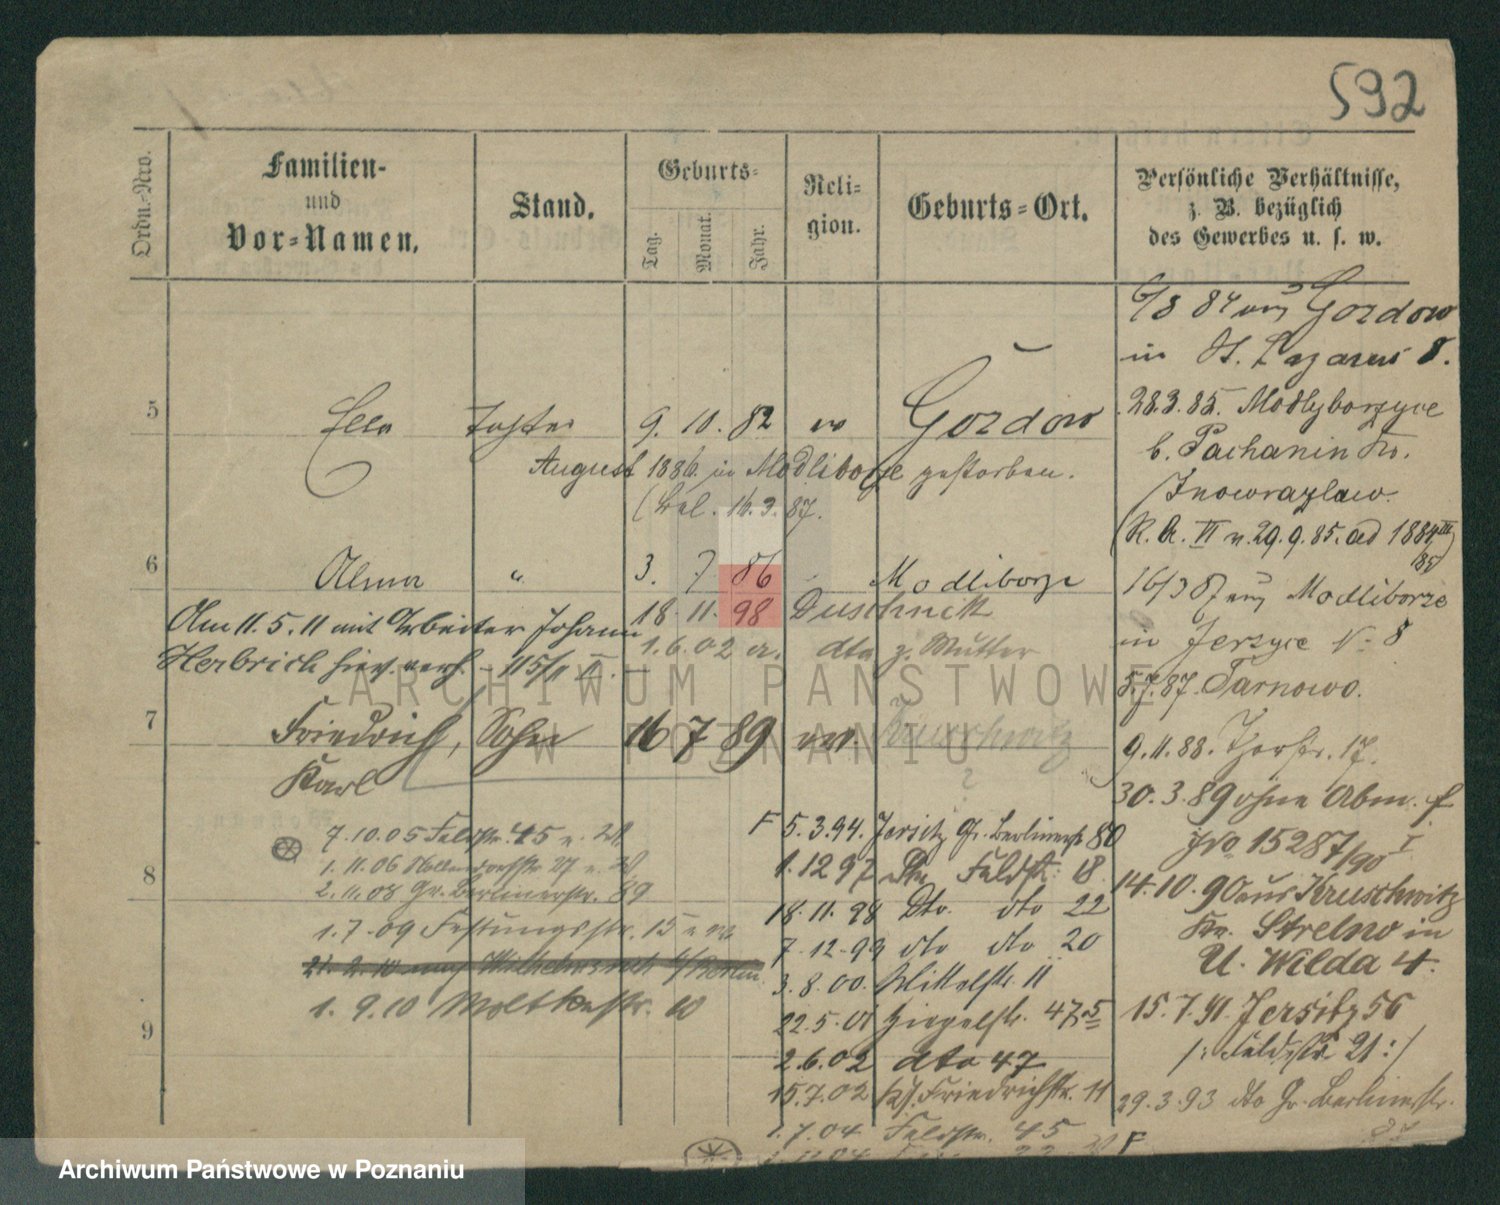 592
Ordn.-Nro.
Familien-
und
Vor-Namen.
Stand.
Geburts-
Tag.
Monat.
Jahr.
Reli-
gion.
Geburts-Ort.
Persönliche Verhältnisse,
z. B. bezüglich
des Gewerbes u. s. w.
6/8 84 aus Gordow
in St. Lazarus 8.
5 Ella Tochter 9. 10. 82 ev Gordow
28.3.85. Modlyborzyce
b. Pachanin Kr.
August 1886 in Modliborze gestorben.
Inowrazlaw.
16.3.87.
(R. A. VI v. 29.9.85. ad 1884 III/85)
6 Alma " 3. 7 86 Modliborze
16/3 87 aus Modliborze
Am 11.5.11 mit Arbeiter Johann
18. 11. 98 Duschnik
Herbrich hier verh. - 115/11 II.
1.6.02 a. dto z. Mutter
in Jerzyce N: 8
5.7.87. Tarnowo.
7 Friedrich, Sohn 16 7 89 ev. Kruschwitz
?
Karl
9.11.88. 17.
30.3.89 ohne Abm. f.
Jro 15287/90 I
14.10.90 aus Kruschwitz
Kr. Strelno in
U. Wilda 4.
15.7.91. Jersitz 56
/: Feldstr. 21 :/
29.3.93 dto Gr. Berlinerstr.
8
9
7.10.05 Feldstr. 45
1.11.06 27
2.11.08 Gr. Berlinerstr. 89
1.7.09 Festungsstr. 15
1.9.10 Moltkestr. 10
F 5.3.94. Jersitz Gr. Berlinerstr 80
1.12 97 Dto Feldstr. 18
18.11.98 Dto. dto 22
7.12.99 dto dto 20
3.8.00. Mittelstr. 11
22.5.01 Ziegelstr. 47
2.6.02 dto 47
15.7.02 Ks. Friedrichstr. 11
1.7.04 Feldstr. 45
F
ARCHIWUM PAŃSTWOWE
W POZNANIU
Archiwum Państwowe w Poznaniu